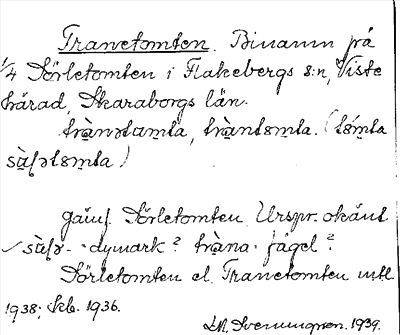 Tranetomten. Binamn på
1/4 Sörletomten i Flakebergs s:n, Viste
härad, Skaraborgs län.
trànətamta, tràntømta. (tǿmta
sø̀ɭətømta)
jämf. Sörletomten. Urspr. okänt
sø̀ɭə- "dymark"? tràna "fågel"?
Sörletomten el. Tranetomten mtl
1938; Ekk. 1936.
M. Svenungson. 1939.